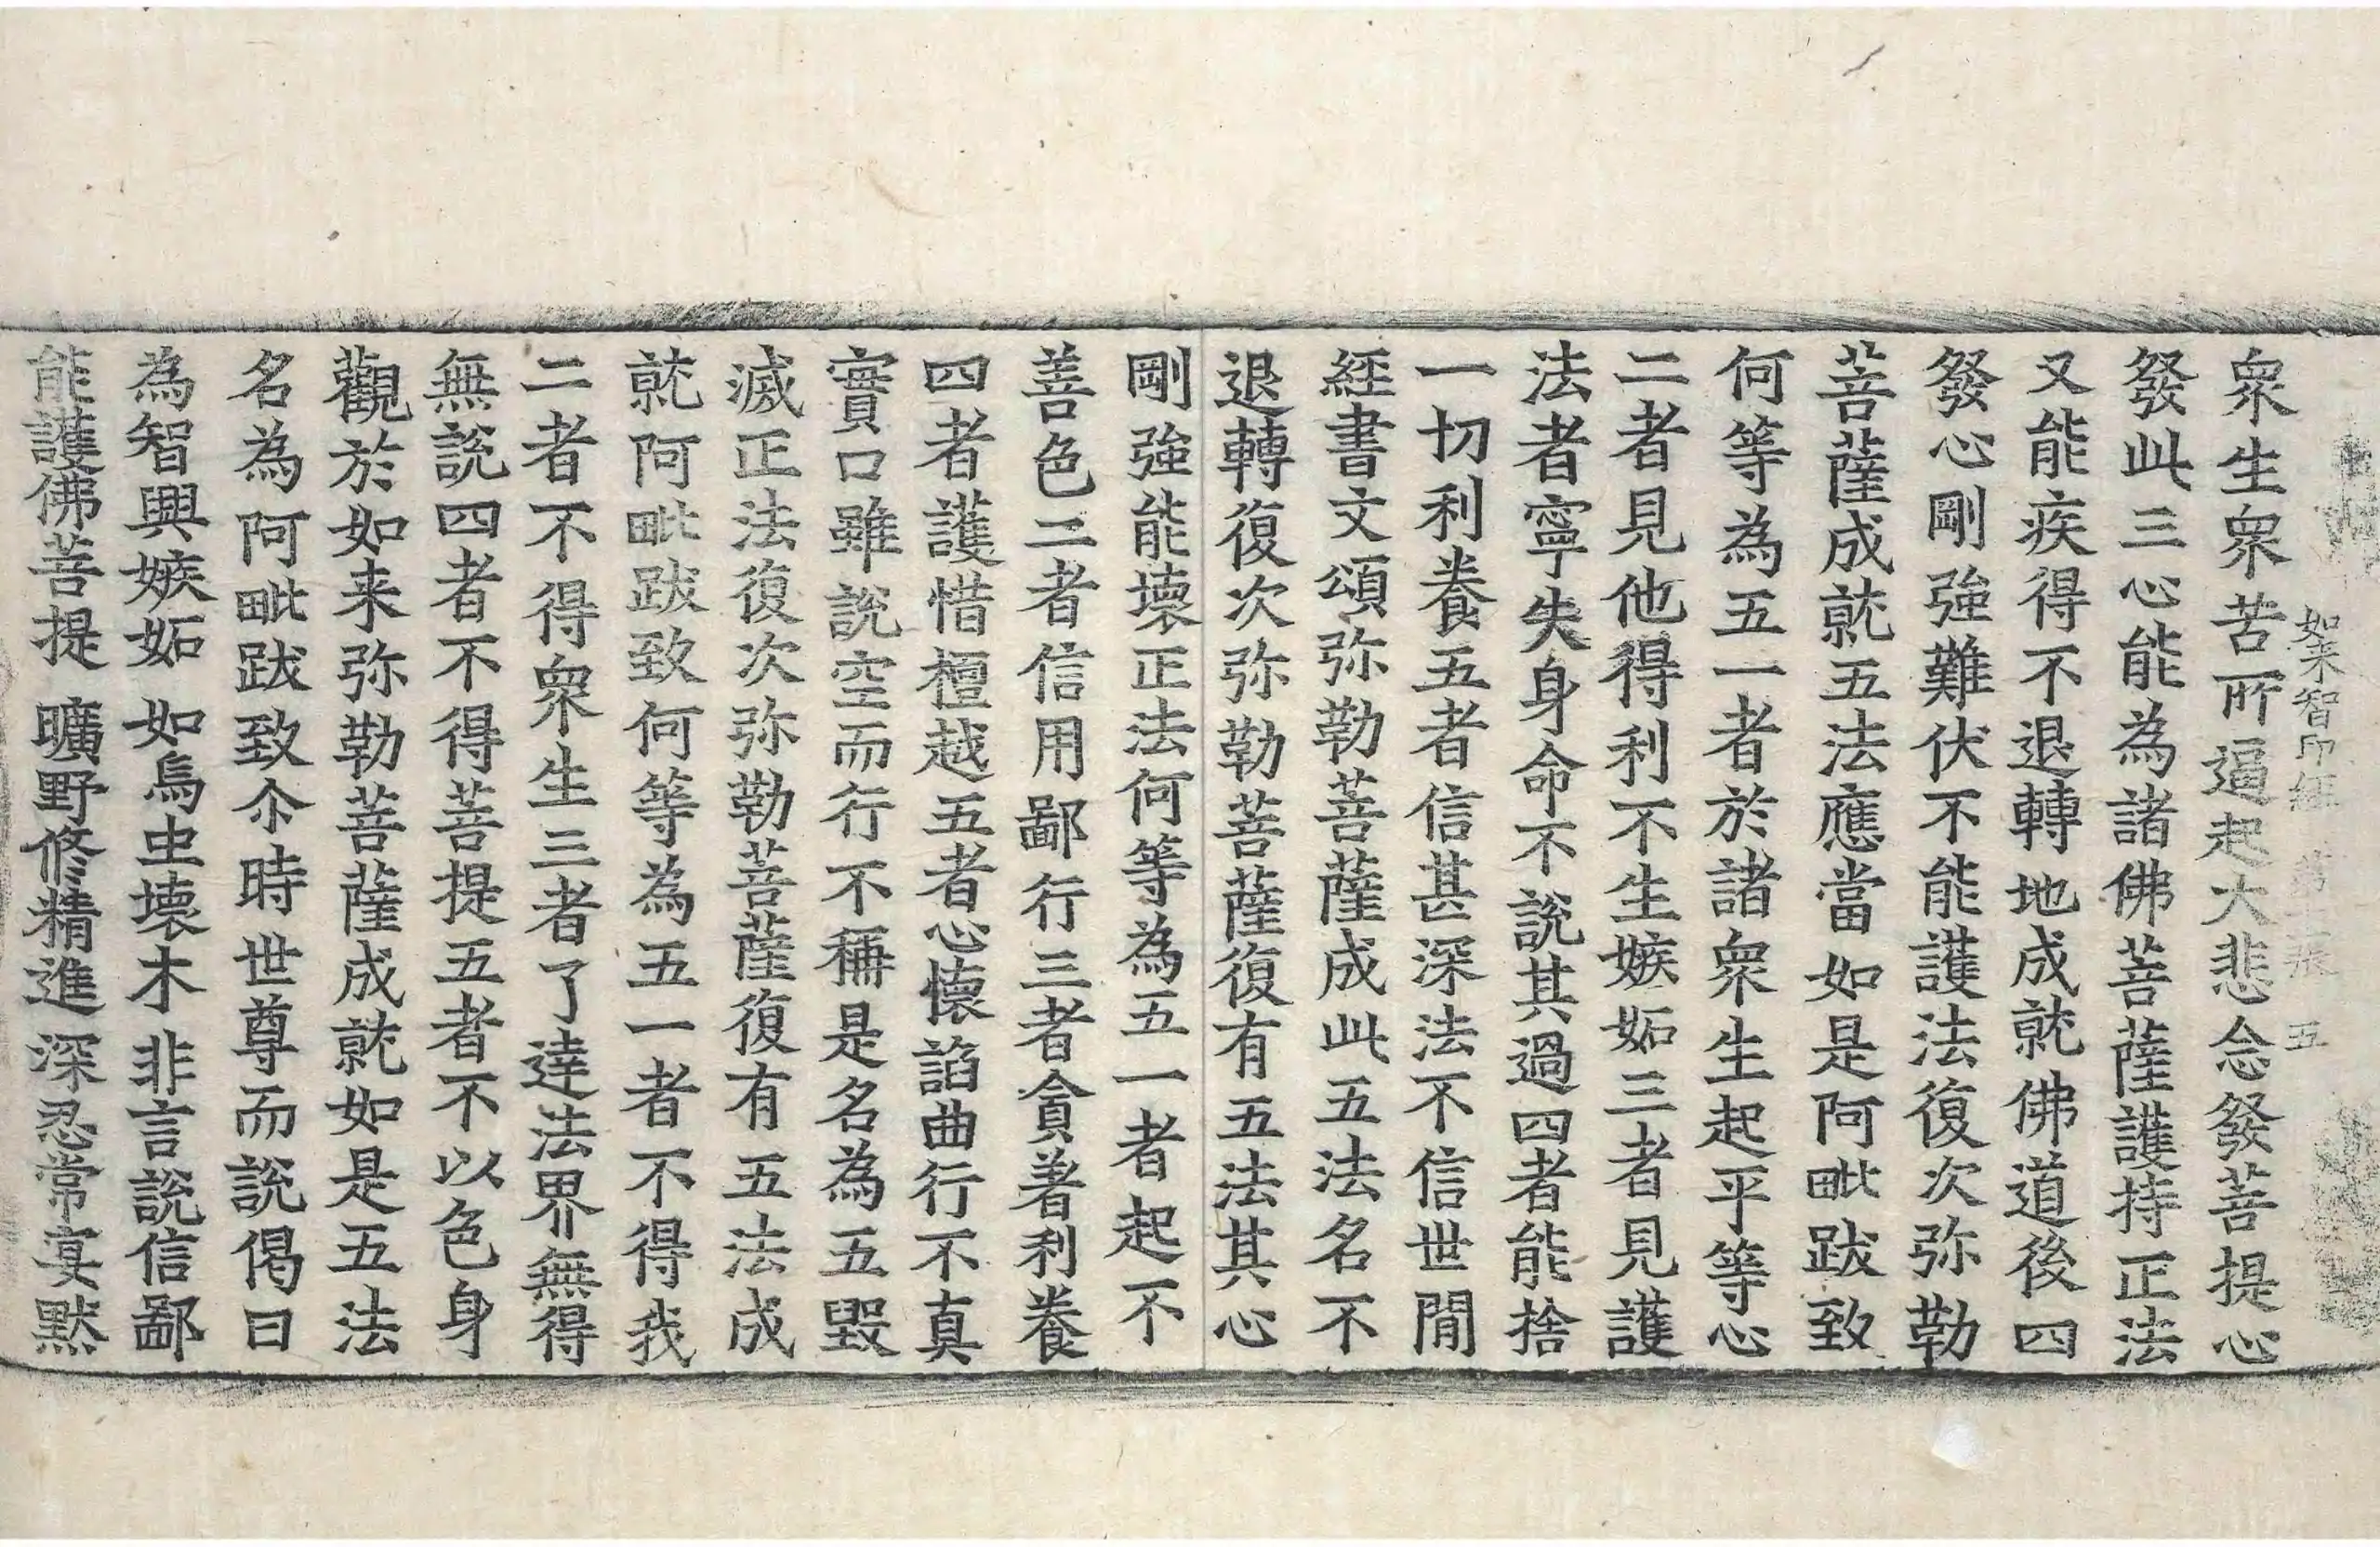 如来智印經 第二張 五
衆生衆苦所逼起大悲念發菩提心
發此三心能為諸佛菩薩護持正法
又能疾得不退轉地成就佛道後四
發心剛強難伏不能護法復次弥勒
菩薩成就五法應當如是阿毗跋致
何等為五一者於諸衆生起平等心
二者見他得利不生嫉妬三者見護
法者寧失身命不說其過四者能捨
一切利養五者信甚深法不信世閒
經書文頌弥勒菩薩成此五法名不
退轉復次弥勒菩薩復有五法其心
剛強能壞正法何等為五一者起不
善色二者信用鄙行三者貪著利養
四者護惜檀越五者心懷諂曲行不真
實口雖說空而行不稱是名為五毀
滅正法復次弥勒菩薩復有五法成
就阿毗跋致何等為五一者不得我
二者不得衆生三者了達法界無得
無說四者不得菩提五者不以色身
觀於如来弥勒菩薩成就如是五法
名為阿毗跋致尒時世尊而說偈曰
為智興嫉妬 如烏虫壞木 非言說信鄙
能護佛菩提 曠野修精進 深忍常寞黙